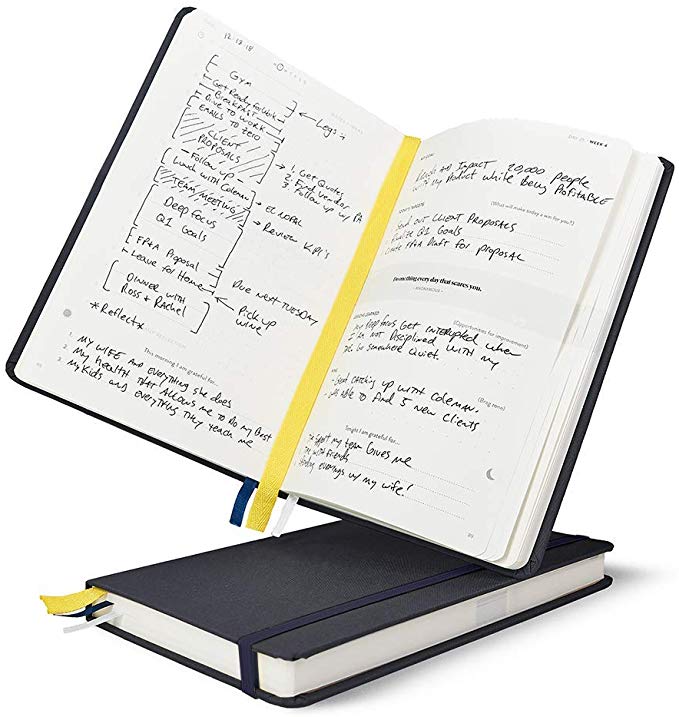 12.13.18
GYM
Get Ready for Work
BREAKFAST
Drive to work
EMAILS TO ZERO
CLIENT
PROPOSALS
Follow up
Lunch with Coleman
TEAM MEETING
Deep focus
Q1 Goals
FP&A Proposal
Leave for Home
DINNER WITH
ROSS + RACHEL
*Reflect*
Legs
1. Get Quotes
2. Find vendor
3. Follow up w/
Review KPI's
Due next TUESDAY
Pick up
wine
This morning I am grateful for...
1. MY WIFE AND EVERYTHING she does
2. My HEALTH THAT ALLOWS ME TO DO MY BEST
3. My Kids and EVERYTHING THEY TEACH ME
WEEK 4
IMPACT 20,000 people
with My Product while Being PROFITABLE
(What will make today a win for you?)
Send OUT CLIENT PROPOSALS
Q1 Goals
FP&A Draft for proposal
Do something every day that scares you.
- ANONYMOUS -
(Opportunities for improvement)
Deep focus Get interrupted when
I'm not Disciplined with my
be somewhere Quiet.
(Brag zone)
Great catching up with COLEMAN.
was able to find 5 new clients
Tonight I am grateful for...
support my team Gives me
with friends
evenings w/ my wife!